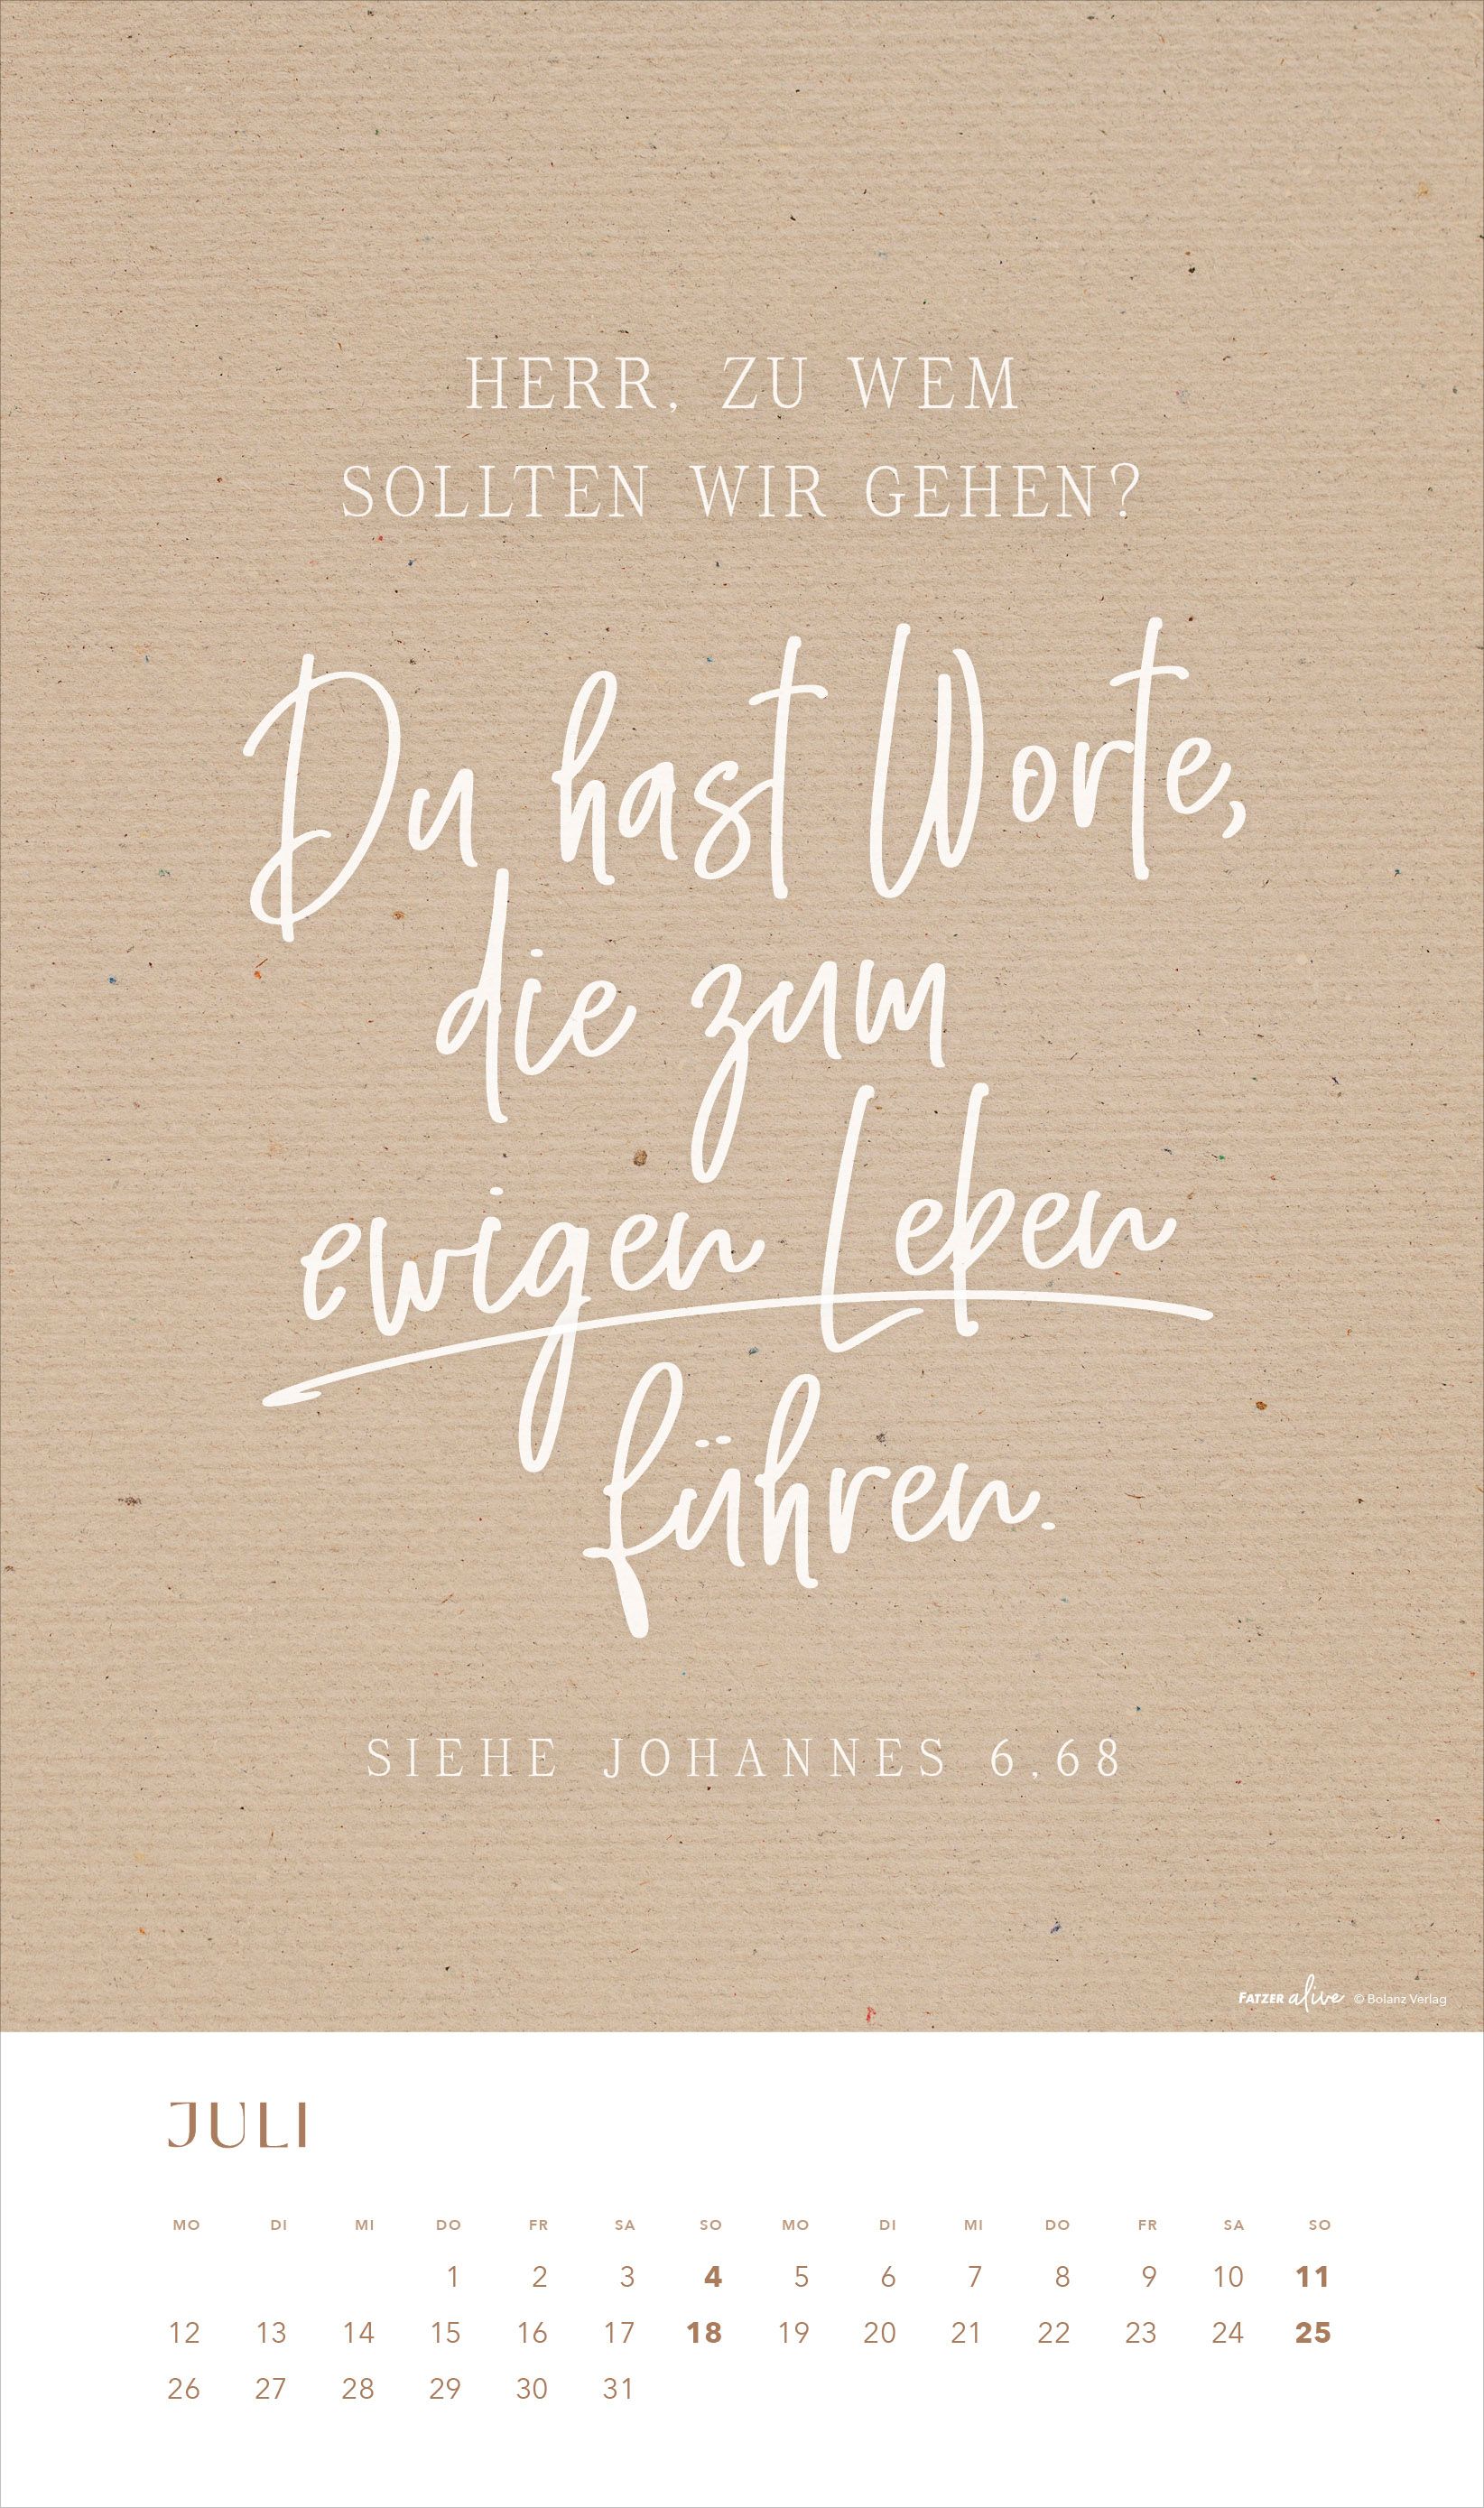 HERR, ZU WEM
SOLLTEN WIR GEHEN?
Du hast Worte,
die zum
ewigen Leben
führen.
SIEHE JOHANNES 6,68
FATZER alive © Bolanz Verlag
JULI
MO DI MI DO FR SA SO MO DI MI DO FR SA SO
1 2 3 4 5 6 7 8 9 10 11
12 13 14 15 16 17 18 19 20 21 22 23 24 25
26 27 28 29 30 31